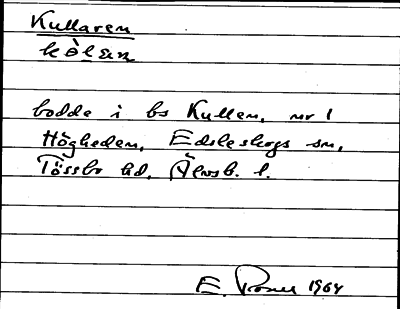 Kullaren
kò̀lan
bodde i bs Kullen, nr 1
Högheden, Edsleskogs sn,
Tössbo hd, Älvsb. l.
E. 1964